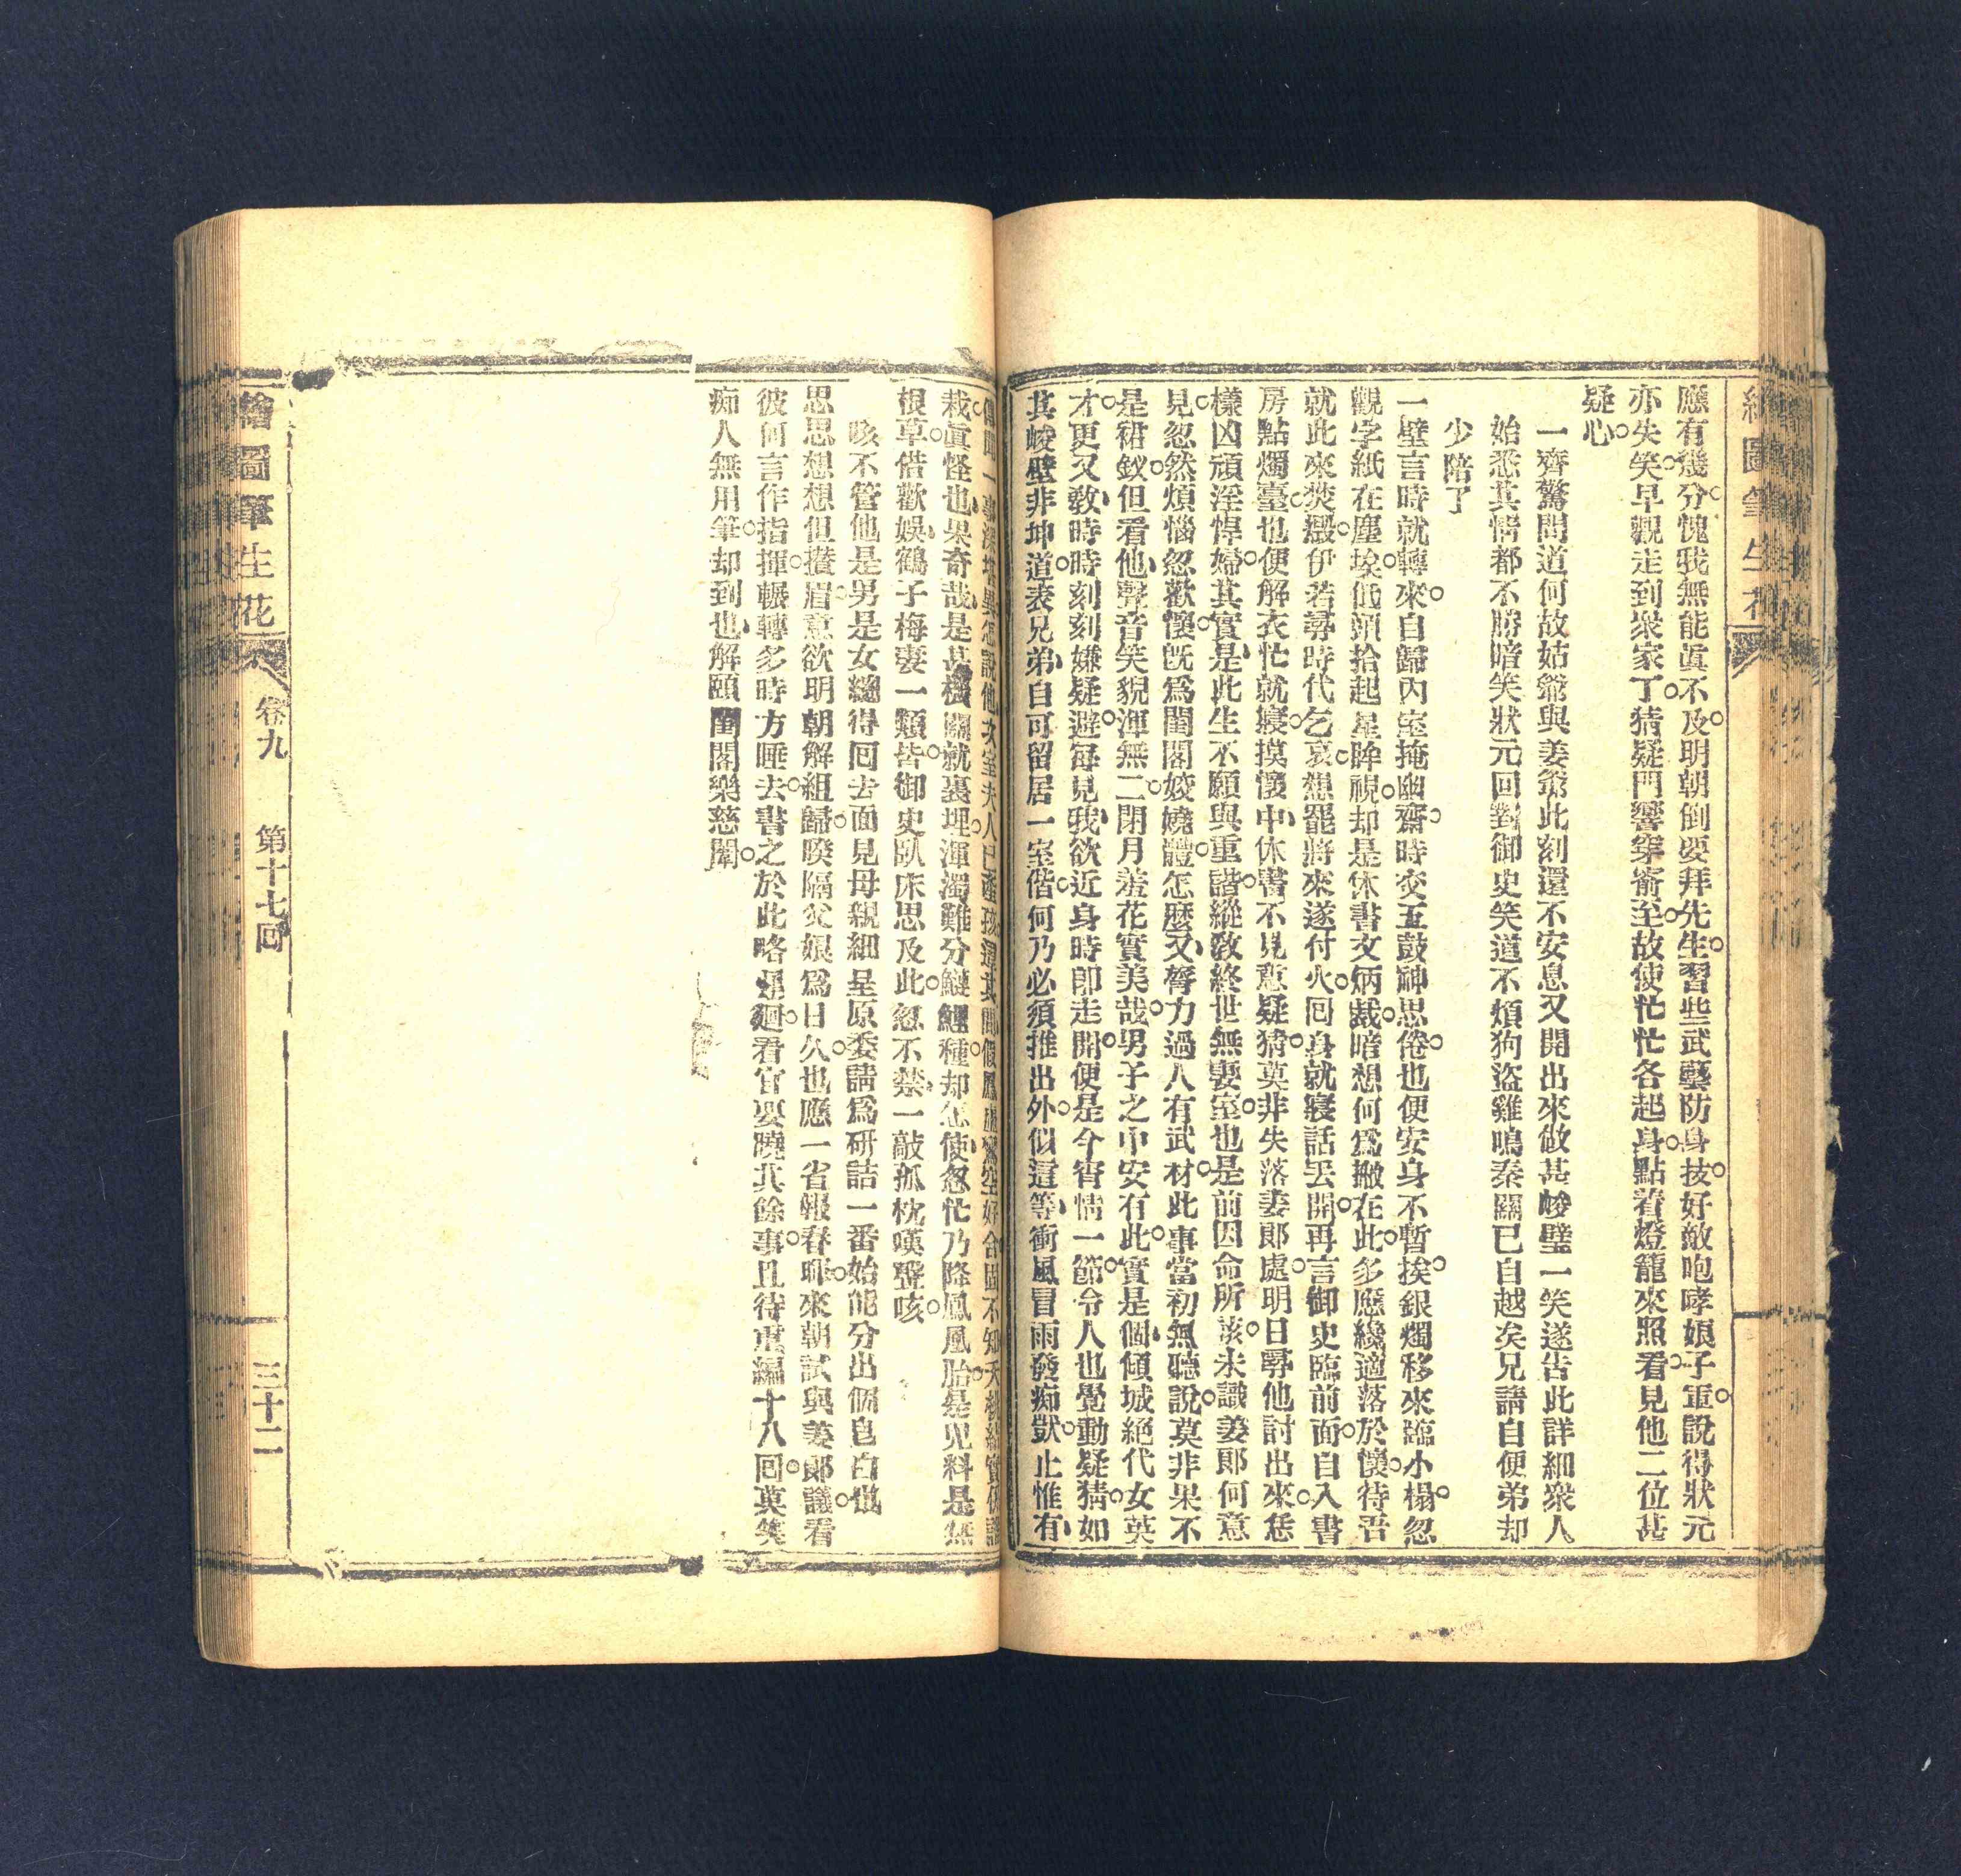 繪圖筆生花
應有幾分愧我無能眞不及明朝倒要拜先生習些武藝防身技好敵咆哮娘子軍說得狀元
亦失笑早觀走到衆家丁猜疑門響穿衕至故使忙忙各起身點着燈籠來照看見他二位甚
疑心
一齊驚問道何故姑爺與姜爺此刻還不安息又開出來做甚峻璧一笑遂告此詳細衆人
始悉其情都不勝暗笑狀元回對御史笑道不煩狗盜雞鳴秦關已自越矣兄請自便弟却
少陪了
一壁言時就轉來自歸內室掩幽齋時交五鼓神思倦也便安身不暫挨銀燭移來臨小榻忽
觀字紙在塵埃低頭拾起星眸視却是休書文炳裁暗想何爲撇在此多應纔適落於懷待吾
就此來焚燬伊若尋時代乞哀想罷將來遂付火回身就寢話丟開再言御史臨前面自入書
房點燭臺也便解衣忙就寢摸懷中休書不見意疑猜莫非失落妻郎處明日尋他討出來恁
樣凶頑淫悍婦其實是此生不願與重諧縱敎終世無妻室也是前因命所該未識姜郎何意
見忽然煩惱忽歡懷旣爲閨閣姣嬈體怎麼又膂力過人有武材此事當初無聽說莫非果不
是裙釵但看他聲音笑貌渾無二閉月羞花實美哉男子之中安有此實是個傾城絕代女英
才更又敎時時刻刻嫌疑避每見我欲近身時即走開便是今宵情一節令人也覺動疑猜如
其峻壁非坤道表兄弟自可留居一室偕何乃必須推出外似這等衝風冒雨發痴獃止惟有
他次室夫人已產孩
栽眞怪也果奇哉是甚機關就裏埋渾濁難分鰱鯉種却怎使忽忙乃降鳳凰胎是児料是無
根草借歡娛鶴子梅妻一類皆御史臥床思及此忽不禁一敲孤枕嘆聲咳
咳不管他是男是女纔得回去面見母親細呈原委請爲研詰一番始能分出個皂白也
思思想想但攅眉意欲明朝解組歸暌隔父娘爲日久也應一省報春暉來朝試與姜郎議看
彼何言作指揮輾轉多時方睡去書之於此略遲廻看官要曉其餘事且待重編十八回莫笑
痴人無用筆却到也解頤閨閣樂慈闈
繪圖筆生花
卷九
第十七回
三十二